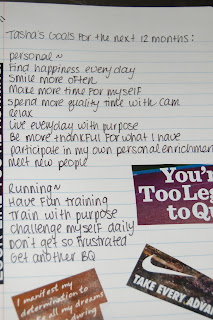 Tasha's Goals for the next 12 months:
personal~
Find happiness everyday
Smile more often
Make more time for myself
Spend more quality time with Cam
Relax
Live everyday with purpose
Be more thankful for what I have
participate in my own personal enrichment
meet new people
Running~
Have fun training
Train with purpose
challenge myself daily
Don't get so frustrated
Get another BQ
You're
Too Leg
to Qu
TAKE EVERY ADVA
I manifest my
determination to
all my dreams
during